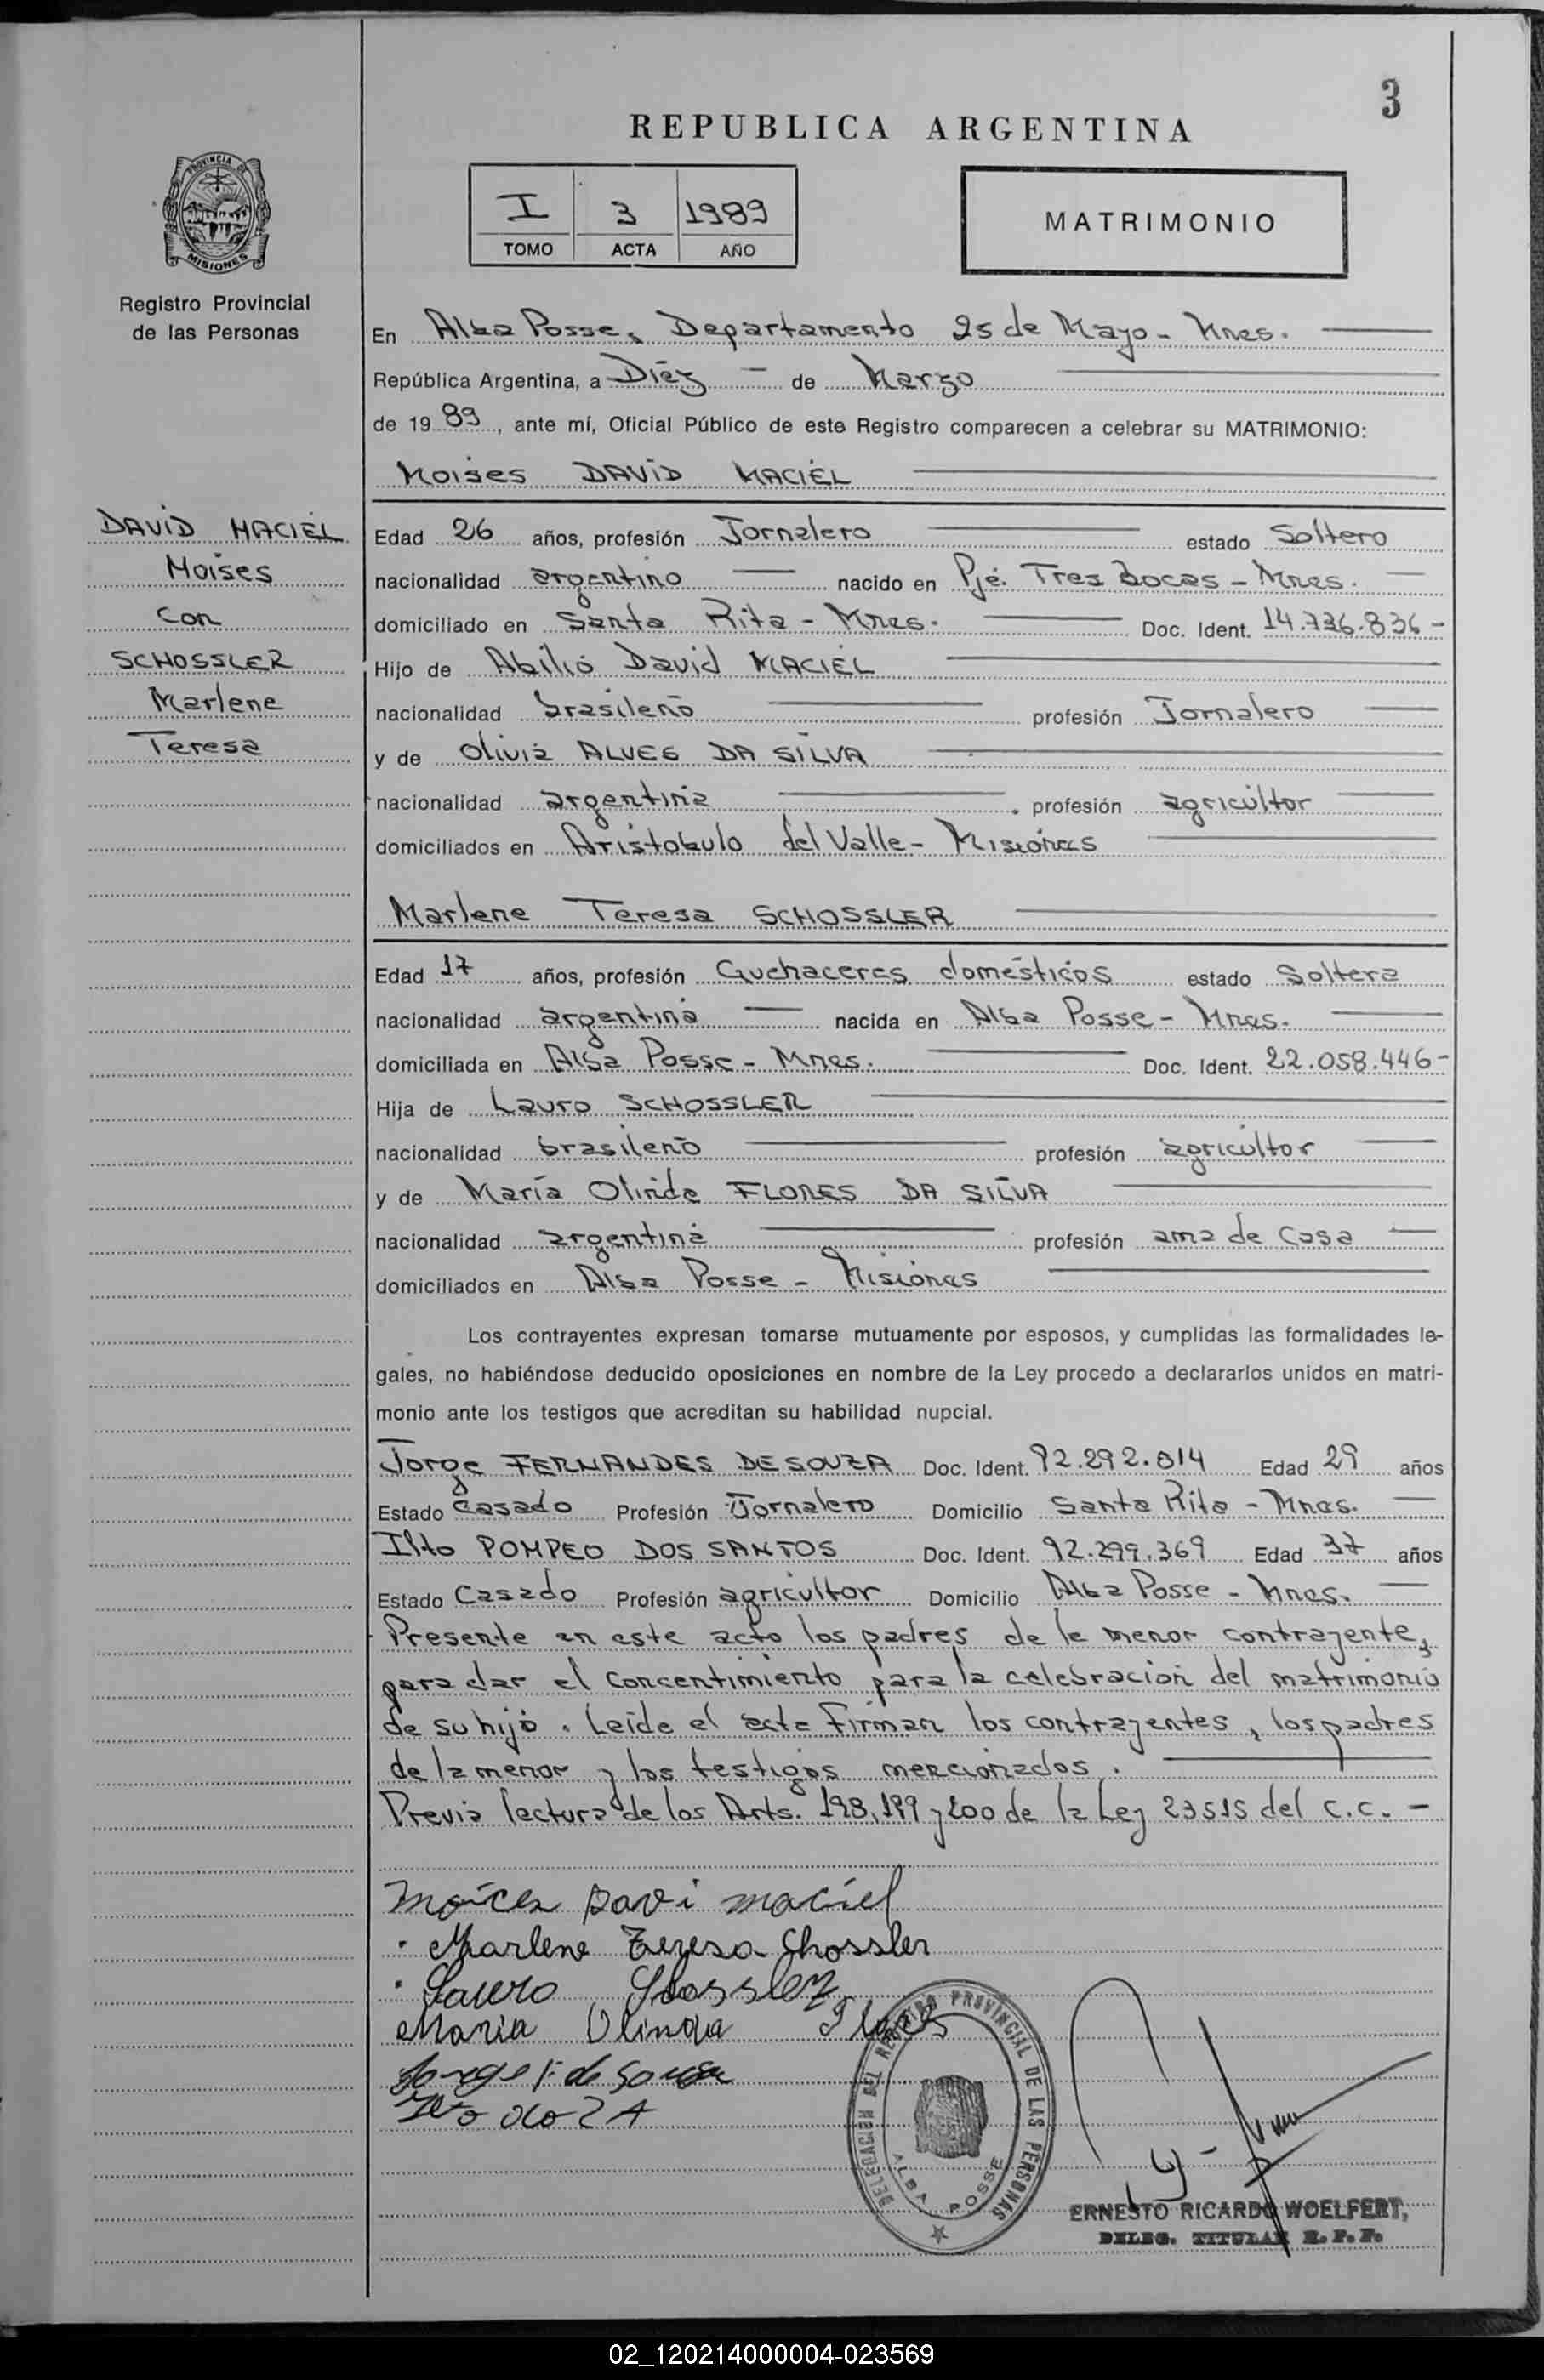 3
REPUBLICA ARGENTINA
PROVINCIA DE MISIONES
I 3 1989
TOMO ACTA AÑO
MATRIMONIO
Registro Provincial
de las Personas
En Alba Posse, Departamento 25 de Mayo - Mnes.
República Argentina, a Diéz de Marzo
de 1989, ante mí, Oficial Público de este Registro comparecen a celebrar su MATRIMONIO:
Moises DAVID MACIEL
DAVID MACIEL
Moises
con
SCHOSSLER
Marlene
Teresa
Edad 26 años, profesión Jornalero estado Soltero
nacionalidad argentino nacido en Pjé. Tres Bocas - Mnes.
domiciliado en Santa Rita - Mnes. Doc. Ident. 14.736.836-
Hijo de Abilio David MACIEL
nacionalidad brasileño profesión Jornalero
y de Olivia ALVES DA SILVA
nacionalidad argentina profesión agricultor
domiciliados en Aristobulo del Valle - Misiones
Marlene Teresa SCHOSSLER
Edad 17 años, profesión Quehaceres domésticos estado Soltera
nacionalidad argentina nacida en Alba Posse - Mnes.
domiciliada en Alba Posse - Mnes. Doc. Ident. 22.058.446-
Hija de Lauro SCHOSSLER
nacionalidad brasileño profesión agricultor
y de María Olinda FLORES DA SILVA
nacionalidad argentina profesión ama de casa
domiciliados en Alba Posse - Misiones
Los contrayentes expresan tomarse mutuamente por esposos, y cumplidas las formalidades le-
gales, no habiéndose deducido oposiciones en nombre de la Ley procedo a declararlos unidos en matri-
monio ante los testigos que acreditan su habilidad nupcial.
Jorge FERNANDES DE SOUZA Doc. Ident. 92.292.014 Edad 29 años
Estado Casado Profesión Jornalero Domicilio Santa Rita - Mnes.
Ilto POMPEO DOS SANTOS Doc. Ident. 92.299.369 Edad 37 años
Estado Casado Profesión agricultor Domicilio Alba Posse - Mnes.
Presente en este acto los padres de la menor contrayente,
para dar el concentimiento para la celebración del matrimonio
de su hijo. Leída el acta firman los contrayentes, los padres
de la menor y los testigos mencionados.
Previa lectura de los Arts. 198, 199 y 200 de la Ley 23515 del C.C. -
Moíces Davi maciel
Marlene Tereza Shossler
Lauro Shossler
Maria Olinda Flores
Jorge F. de Souza
DELEGACION DEL REGISTRO PROVINCIAL DE LAS PERSONAS
ALBA POSSE
ERNESTO RICARDO WOELFERT,
DELEG. TITULAR R. P. P.
02_120214000004-023569